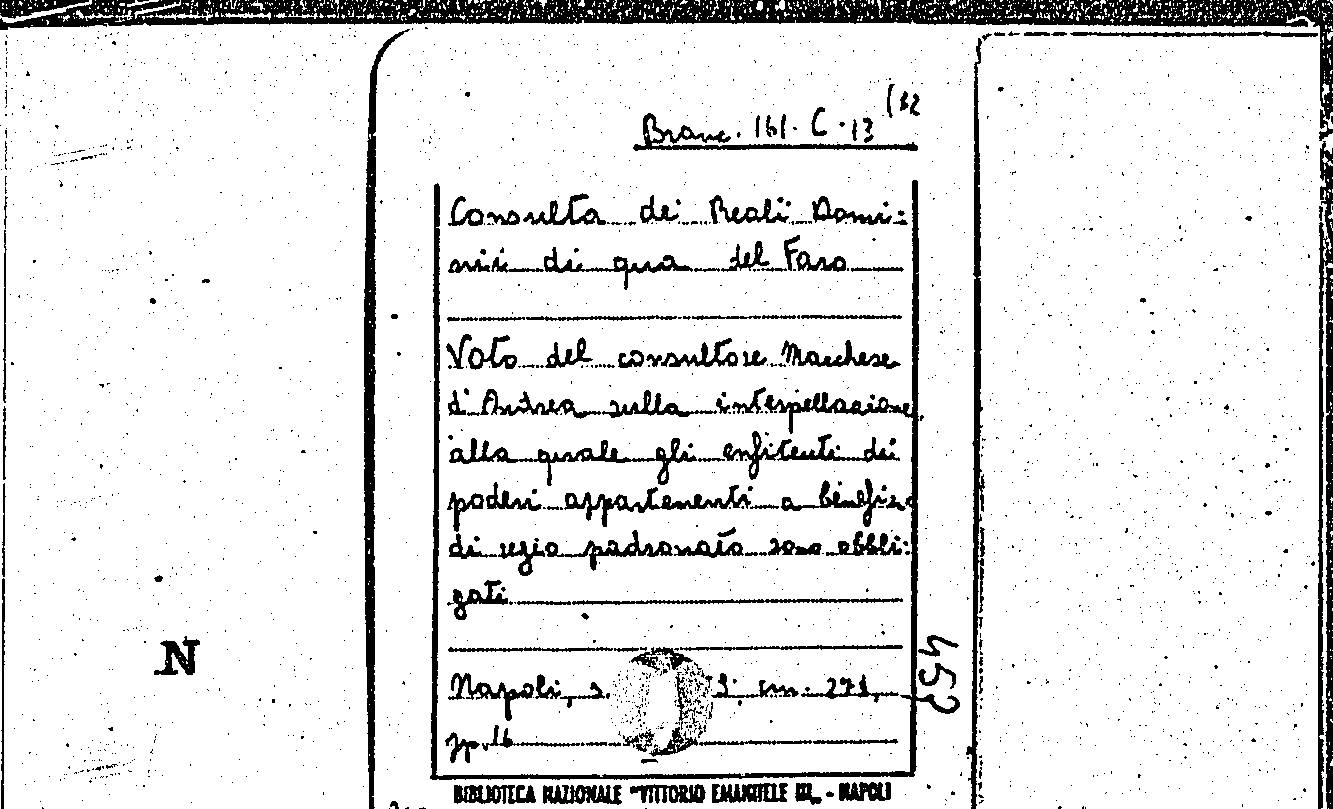 Branc. 161. C. 13 (32
Consulta dei Reali Domi=
nii di qua del Faro
Voto del consultore Marchese
d'Andrea sulla interpellazione
alla quale gli enfiteuti dei
poderi appartenenti a benefizi
di regio padronato sono obbli=
gati
Napoli, s. 8°. cm. 271,
pp. 16
452
N
BIBLIOTECA NAZIONALE "VITTORIO EMANUELE III„ - NAPOLI